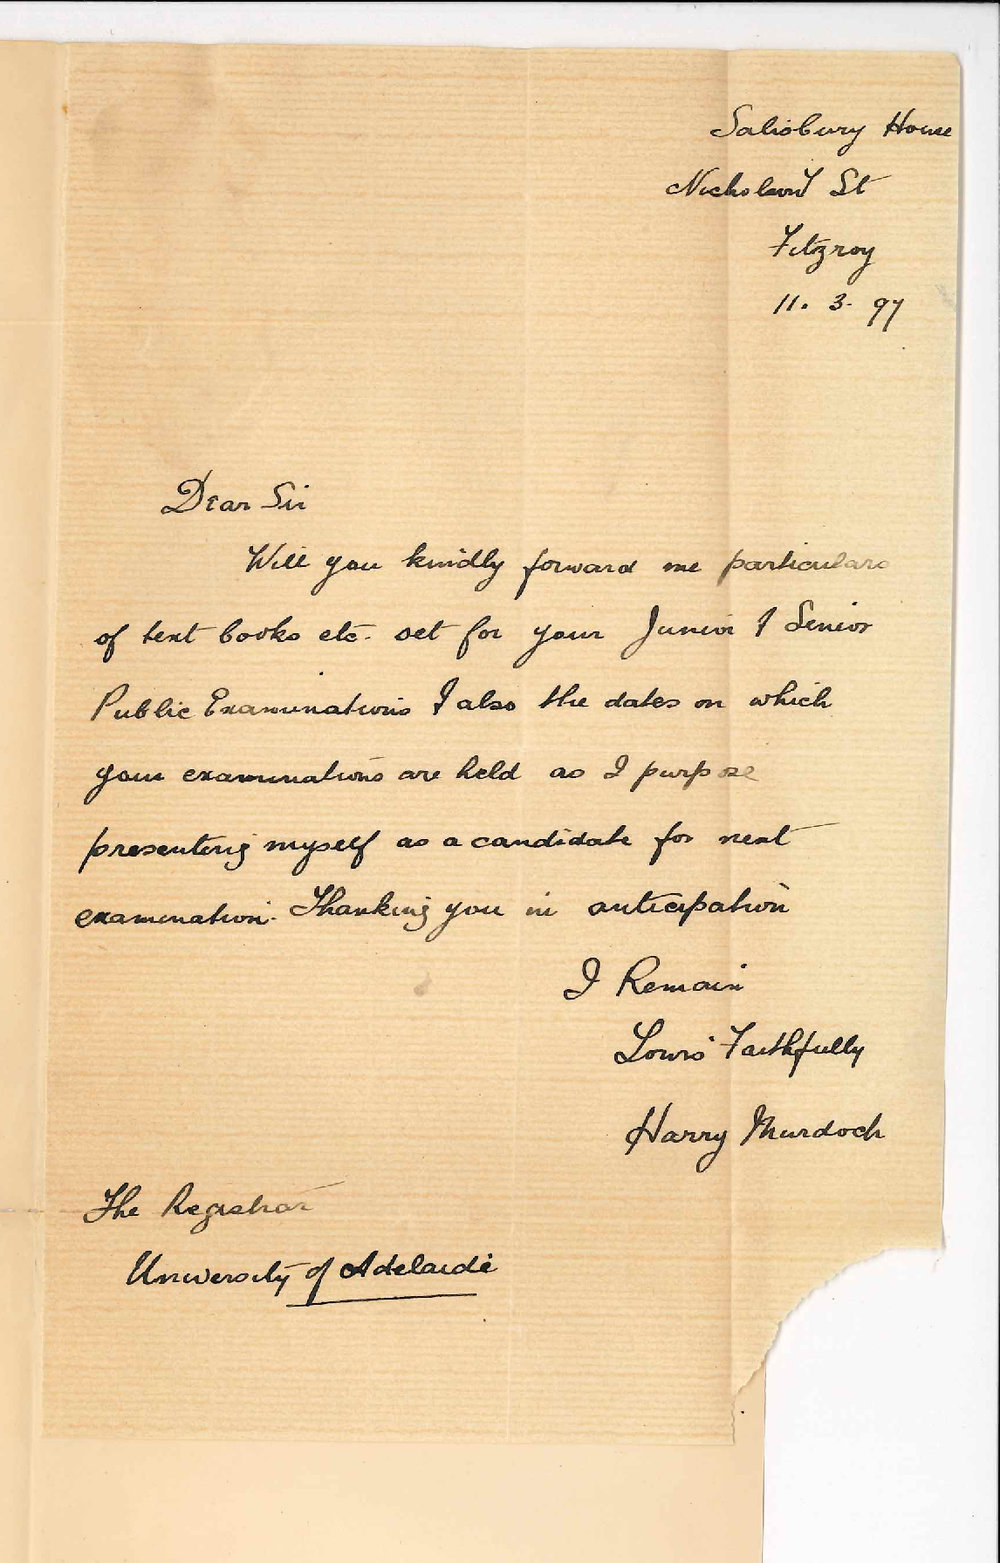 Salisbury House
Nicholson St
Fitzroy
11. 3. 97
Dear Sir
Will you kindly forward me particulars
of text books etc. set for your Junior & Senior
Public Examinations & also the dates on which
your examinations are held as I purpose
presenting myself as a candidate for next
examination. Thanking you in anticipation
I Remain
Yours Faithfully
Harry Murdoch
The Registrar
University of Adelaide